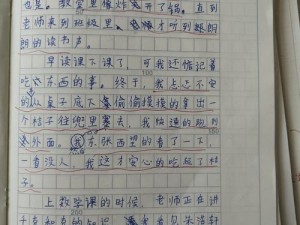 也是。教室里像炸开了锅。直到
老师来到班级里，才听到朗
朗的读书声。
早读课下课了，可我还惦记着
吃东西的事。终于，我忐忑不安
的从桌子底下偷偷摸摸的拿出一
个桔子往兜里塞去，我快速的跑到
外面。我东张西望的看了一下，
一看没人，我这才安心的吃起了桔
子。
上数学课的时候，老师正在讲